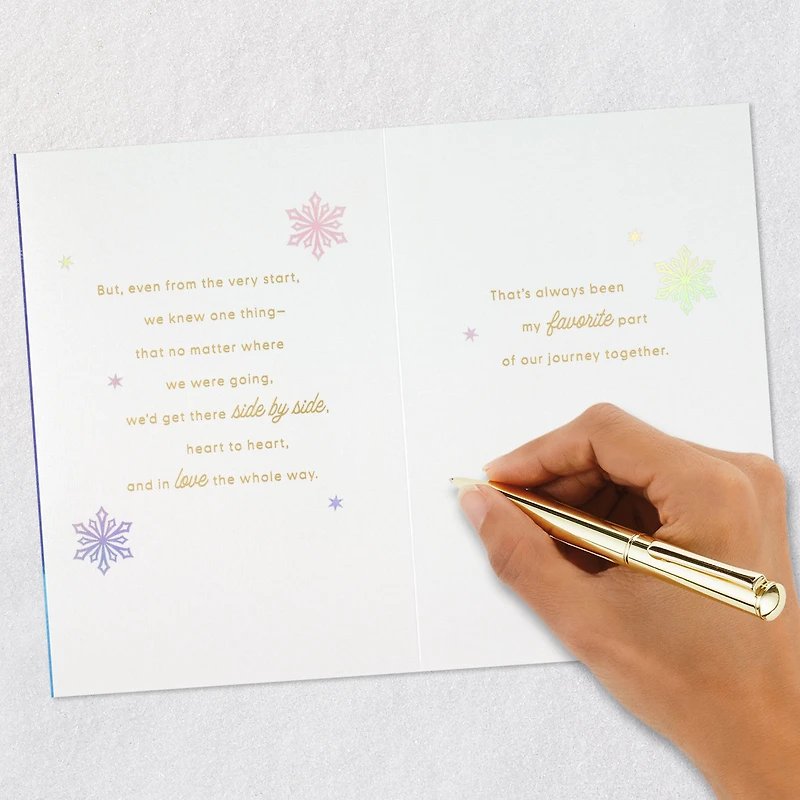 But, even from the very start,
we knew one thing—
that no matter where
we were going,
we'd get there side by side,
heart to heart,
and in love the whole way.
That's always been
my favorite part
of our journey together.